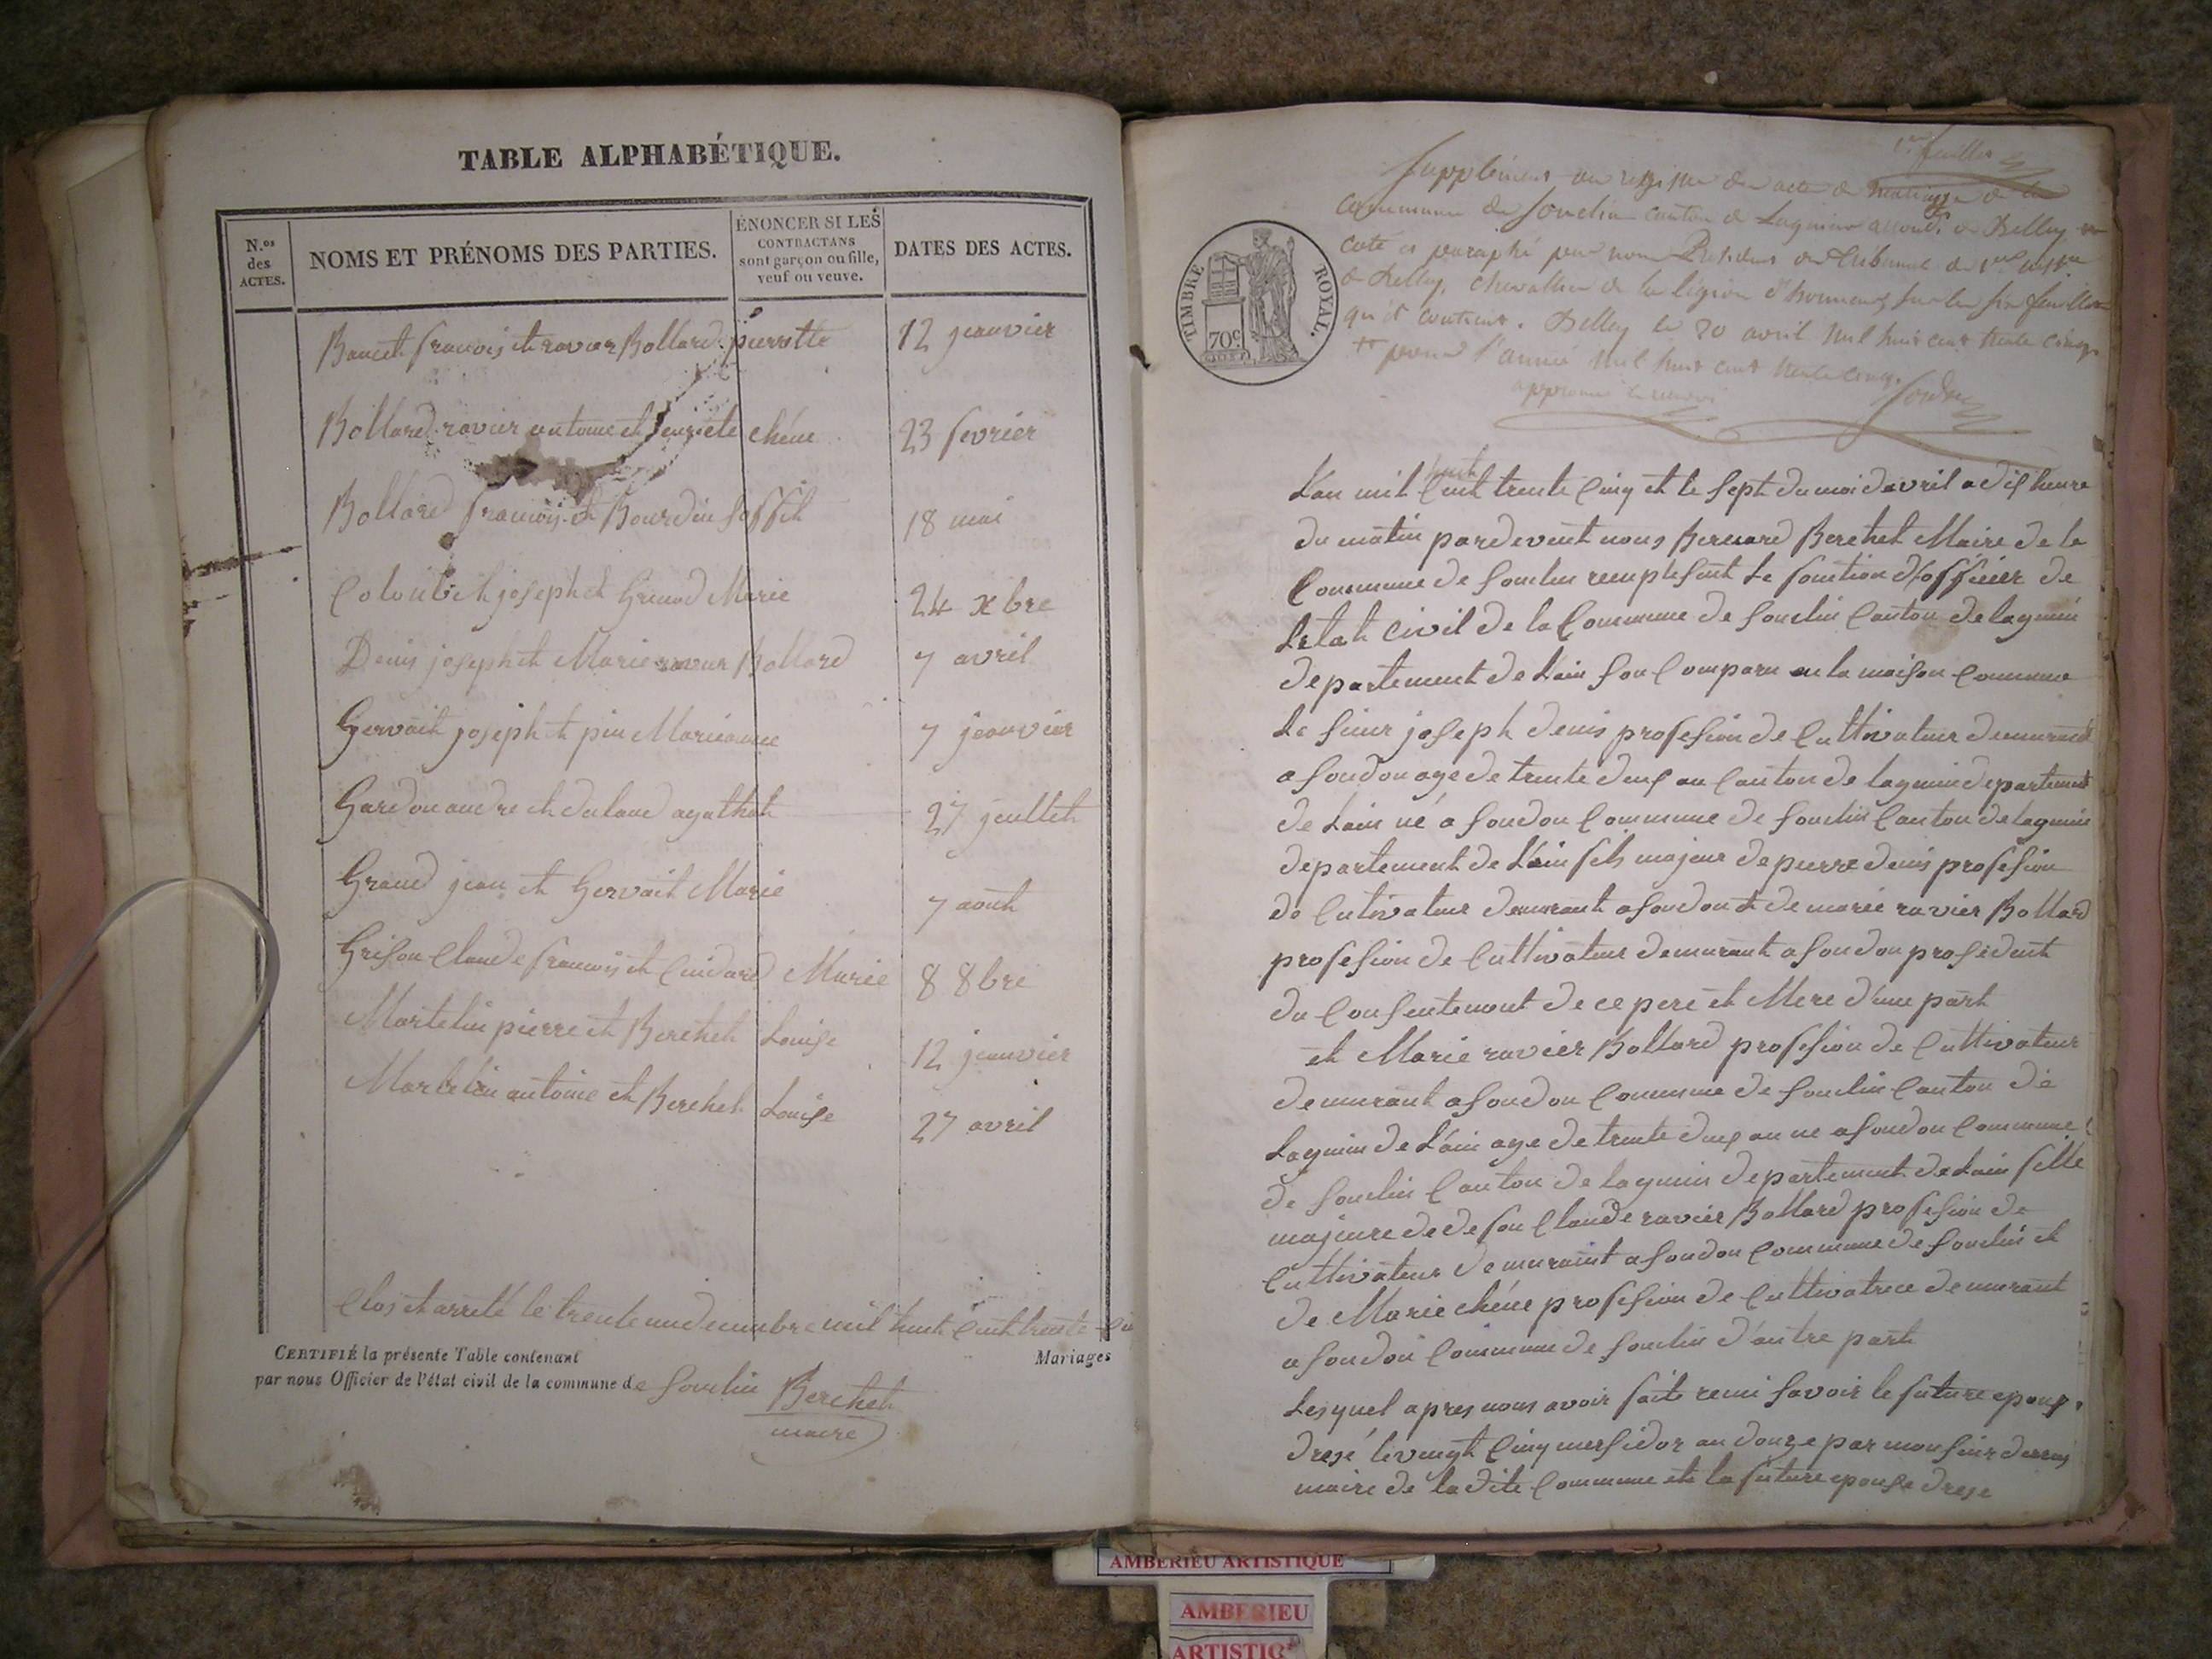 TABLE ALPHABÉTIQUE.
N.os des ACTES.
NOMS ET PRÉNOMS DES PARTIES.
ÉNONCER SI LES CONTRACTANS sont garçon ou fille, veuf ou veuve.
DATES DES ACTES.
francois et ravier Bollard pierrette 12 janvier
Bollard ravier antoine et chéne 23 fevrier
Bollard francois et Bourdin 18 mai
joseph et Marie 24 xbre
Denis joseph et Marie ravier Bollard 7 avril
Gervait joseph et pin Marieanne 7 janvier
Gardon andre et agathe 27 juillet
Grand jean et Gervait Marie 7 aout
Grison Claude francois et Marie 8 8bre
Martelin pierre et Berchet Louise 12 janvier
Martelin antoine et Berchet Louise 27 avril
Clos et arreté le trente un decembre mil huit Cent trente
CERTIFIÉ la présente Table contenant Mariages
par nous Officier de l'état civil de la commune de souclin Berchet
maire
1er feuillet
Supplément au registre des actes de mariage de la
commune de Souclin canton de Lagnieu arrond. de Belley
coté et paraphé par nous Président du Tribunal de 1ere
de Belley, chevalier de la légion d'honneur, sur les six feuillets
qu'il contient. Belley le 20 avril mil huit cent trente cinq
pour l'année mil huit cent trente cinq.
approuvé le renvoi
TIMBRE ROYAL.
70c.
huit
L'an mil Cent trente Cinq et le sept du moi davril a dix heure
du matin pardevent nous Bernard Berchet Maire de la
Commune de souclin remplesent le fonction d'officier de
Letat civil de la Commune de souclin Canton de lagnieu
departement de Lain son Comparu en la maison Commune
Le sieur joseph denis profesion de Cultivateur demurant
a soudon age de trente deux an Canton de lagnieu departement
de Lain né a soudon Commune de souclin Canton de lagnieu
departement de L'ain fils majeur de pierre denis profesion
de Cultivateur demurant a soudon et de marie ravier Bollard
profesion de Cultivateur demurant a soudon prosedent
du Consentement de ce pere et Mere d'une part
et Marie ravier Bollard profesion de Cultivateur
demurant a soudon Commune de souclin Canton de
Lagnieu de L'ain age de trente deux an ne a soudon Commune
de souclin Canton de lagnieu departement de Lain fille
majeure de de feu Claude ravier Bollard profesion de
Cultivateur demurant a soudon Commune de souclin et
de Marie chéne profesion de Cultivatrice demurant
a soudon Commune de souclin d'autre part
Lesquel apres nous avoir fait remi savoir le future epoux
dresé le vingt Cinq mesidor an douze par monsieur
maire de la dite Commune et la future epouse drese
AMBERIEU ARTISTIQUE
AMBERIEU